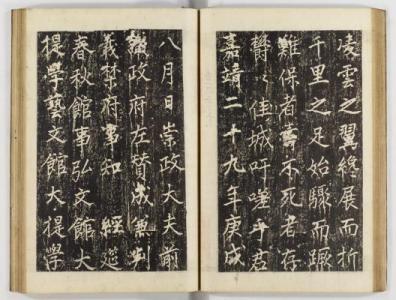 凌雲之翼終展而折
千里之足始驟而蹶
難保者善不死者存
欝〻佳城吁嗟乎君
嘉靖二十九年庚戌
八月日崇政大夫前
議政府左賛成兼判
義禁府事知　經筵
春秋館事弘文館大
提學藝文館大提學